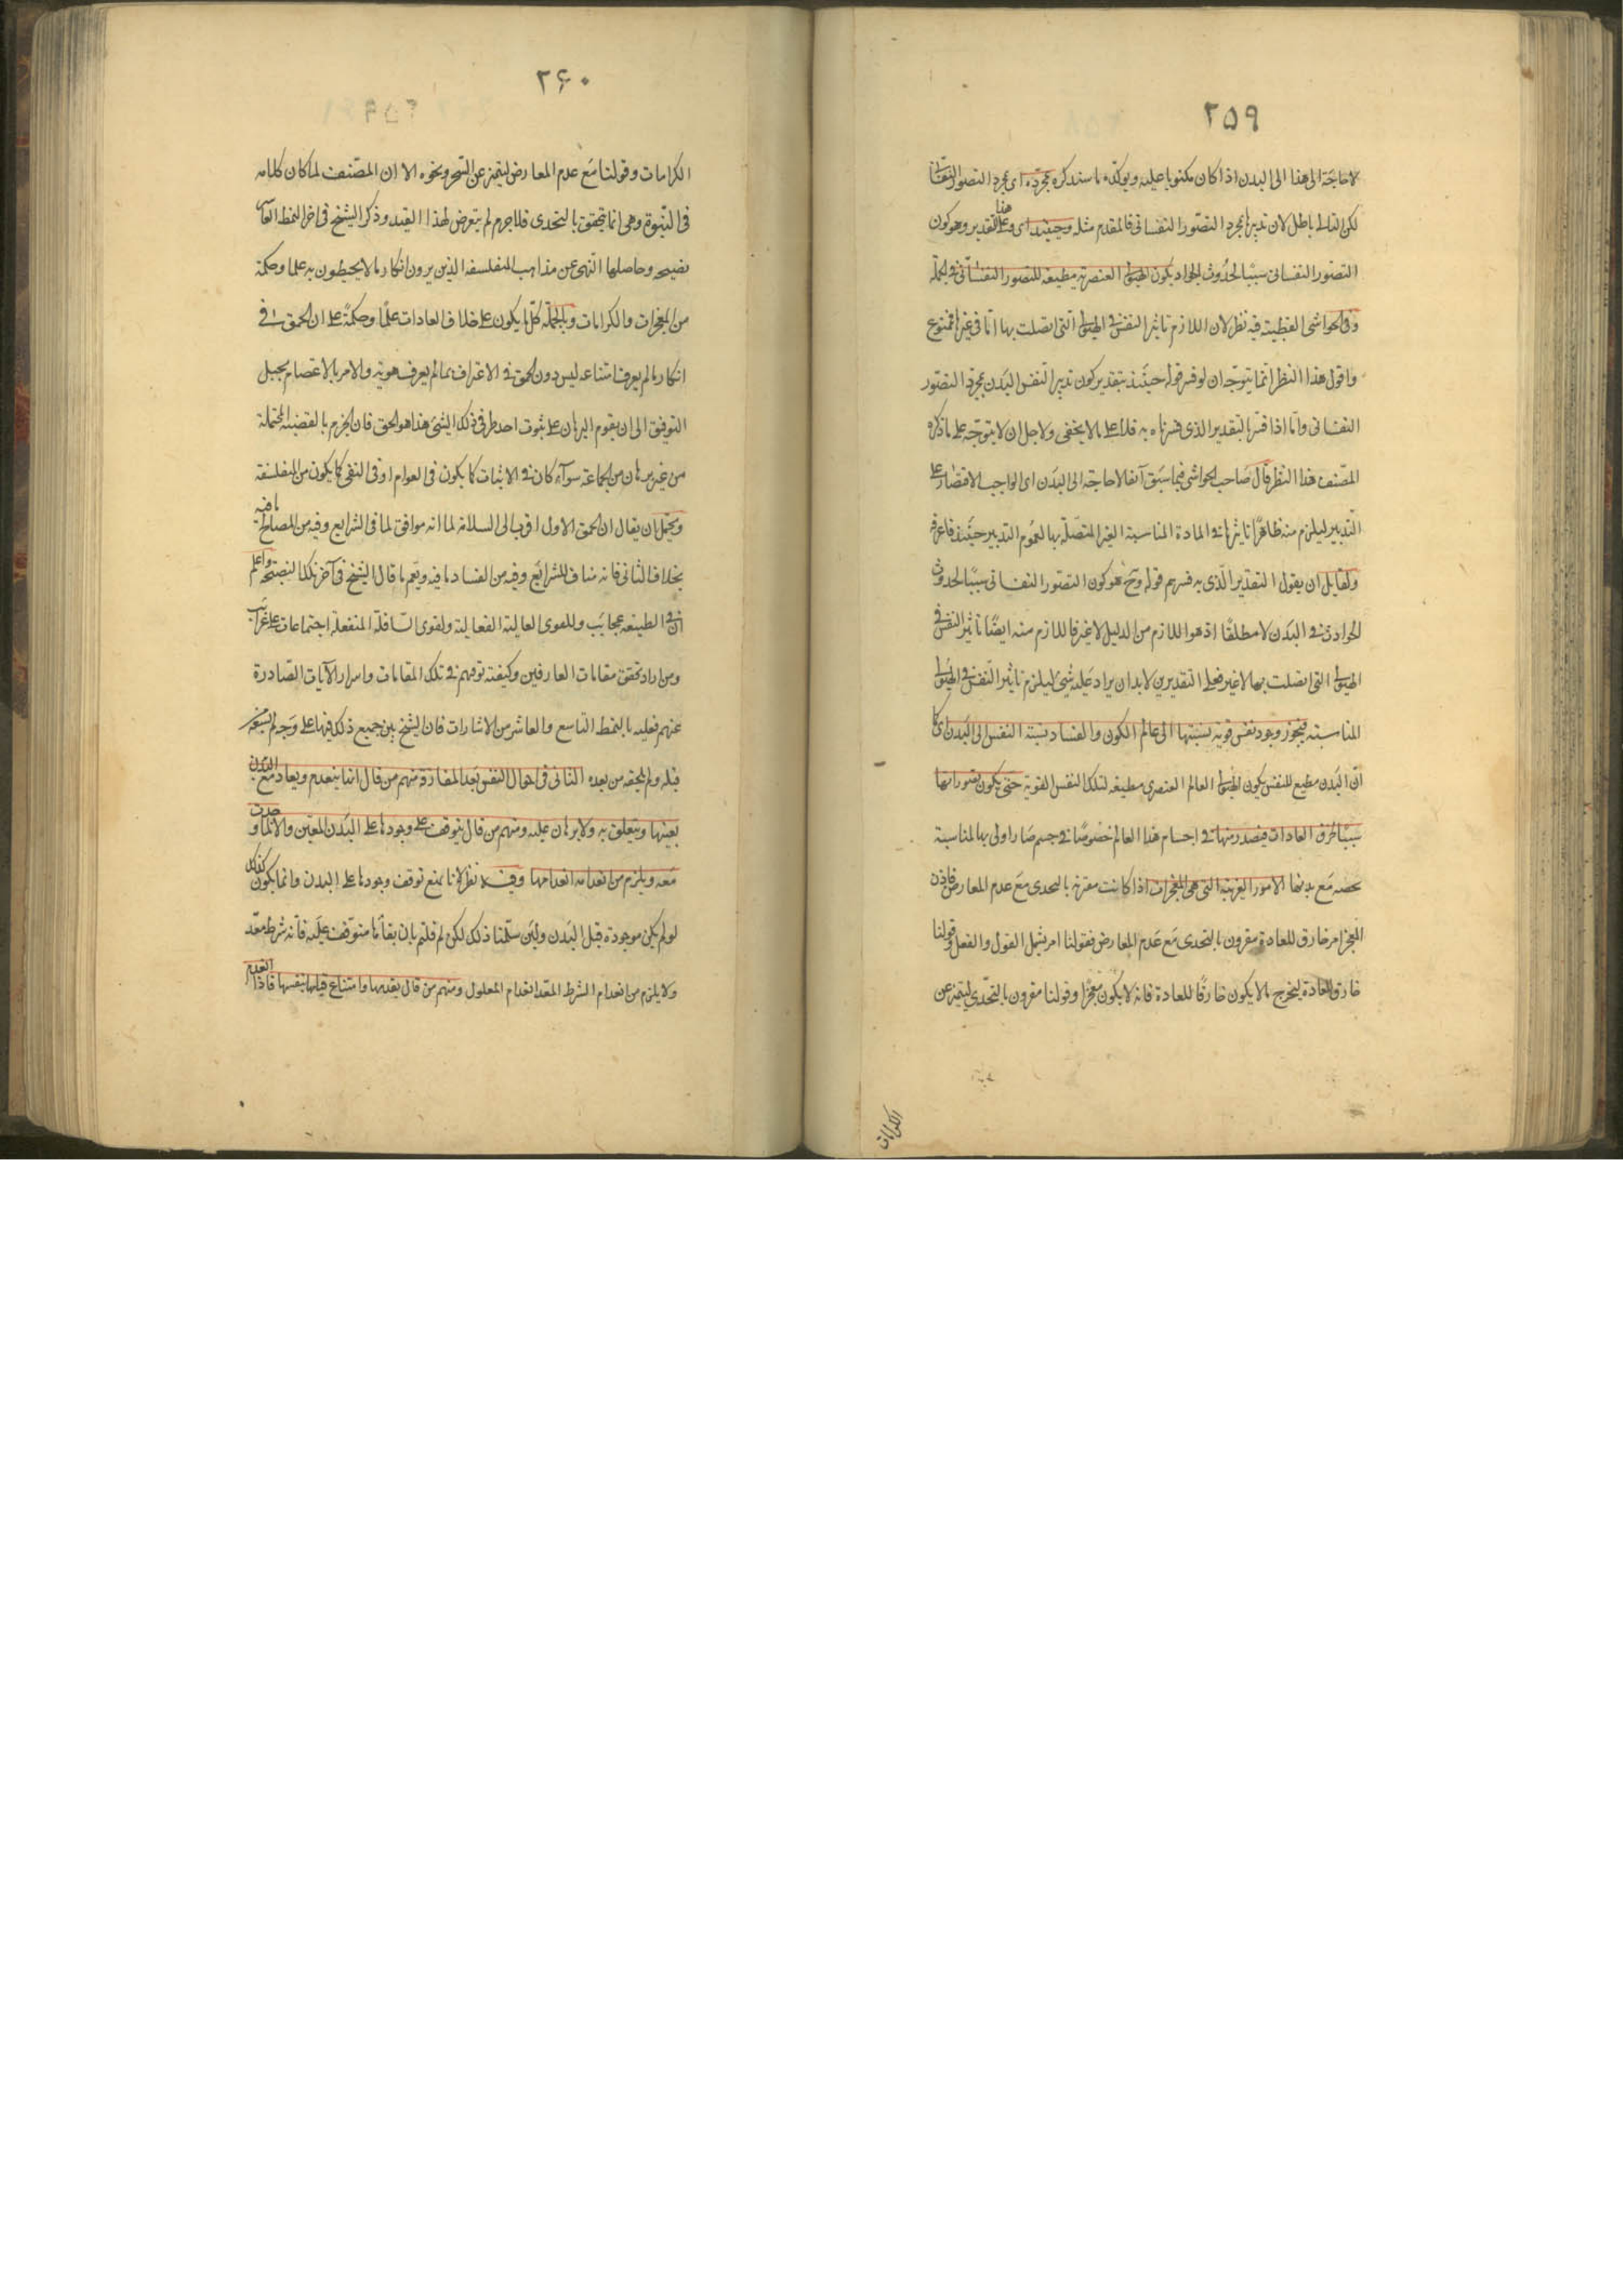 ٢٥٩
لا حاجة الى هذا الى البدن اذا كان مكتوبا عليه ويؤكده ما سنذكره بمجرده اى بمجرد التصور النفسانى
لكن التالى باطل لان تدبيرها بمجرد التصور النفسانى فالمقدم مثله وحينئذ اى وعلى هذا التقدير وهو كون
التصور النفسانى سببا لحدوث الحوادث يكون الهيولى العنصرية مطيعة للتصور النفسانى فى الجملة
وفى الحواشى القطبية فيه نظر لان اللازم تاثير النفس فى الهيولى التى اتصلت بها اما فى غيرها فممنوع
واقول هذا النظر انما يتوجه ان لو فسر قوله حينئذ بتقدير كون تدبير النفس البدن بمجرد التصور
النفسانى واما اذا فسر بالتقدير الذى فسرناه به فلا على ما لا يخفى ولاجل ان لا يتوجه على ما ذكره
المصنف هذا النظر قال صاحب الحواشى فيما سبق آنفا لا حاجة الى البدن اى الواجب الاقتصار على
التدبير ليلزم منه ظاهرا تاثيرها فى المادة المناسبة الغير المتصلة بها لعموم التدبير حينئذ فاعرفه
ولقايل ان يقول التقدير الذى به فسرتم قوله وح هو كون التصور النفسانى سببا لحدوث
الحوادث فى البدن لا مطلقا اذ هو اللازم من الدليل لا غير فاللازم منه ايضا تاثير النفس فى
الهيولى التى اتصلت بها لا غير فعلى التقديرين لابد ان يراد عليه شئ ليلزم تاثير النفس فى الهيولى
المناسبة فيجوز وجود نفس قوية نسبتها الى عالم الكون والفساد نسبة النفس الى البدن اى كما
ان البدن مطيع للنفس يكون الهيولى العالم العنصرى مطيعة لتلك النفس القوية حتى يكون تصوراتها
سببا لخرق العادات فيصدر منها فى اجسام هذا العالم خصوصا فى جسم صار اولى بها لمناسبة
تخصه مع بدنها الامور الغريبة التى هى المعجزات اذا كانت مقترنة بالتحدى مع عدم المعارض فاذن
المعجز امر خارق للعادة مقرون بالتحدى مع عدم المعارض فقولنا امر يشمل القول والفعل وقولنا
خارق للعادة ليخرج ما لا يكون خارقا للعادة فانه لا يكون معجزا وقولنا مقرون بالتحدى ليتميز عن
الكرامات
٢۶٠
الكرامات وقولنا مع عدم المعارض ليتميز عن السحر ونحوه الا ان المصنف لما كان كلامه
فى النبوة وهى انما تتحقق بالتحدى فلا جرم لم يتعرض لهذا القيد وذكر الشيخ فى اخر النمط العاشر
نصيحة وحاصلها النهى عن مذاهب المتفلسفة الذين يرون انكار ما لا يحيطون به علما وحكمة
من المعجزات والكرامات وبالجملة كل ما يكون على خلاف العادات علما وحكمة على ان الحمق فى
انكار ما لم يعرف امتناعه ليس دون الحمق فى الاعتراف بما لم يعرف هويته والامر بالاعتصام بحبل
التوفيق الى ان يقوم البرهان على ثبوت احد طرفى ذلك الشئ هذا هو الحق فان الجزم بالقضية المحتملة
من غير برهان من الجماعة سوآء كان فى الاثبات كما يكون فى العوام او فى النفى كما يكون من المتفلسفة
ويحتمل ان يقال ان الحمق الاول اقرب الى السلامة لما انه موافق لما فى الشرايع وفيه من المصالح ما فيه
بخلاف الثانى فانه مناف للشرائع وفيه من الفساد ما فيه ونعم ما قال الشيخ فى آخر تلك النصيحة واعلم
ان فى الطبيعة عجايب وللقوى العالية الفعالة ولقوى السافلة المنفعلة اجتماعات على غرايب
ومن اراد تحقق مقامات العارفين وكيفية ترقيهم فى تلك المقامات واسرار الآيات الصادرة
عنهم فعليه بالنمط التاسع والعاشر من الاشارات فان الشيخ بين جميع ذلك فيها على وجه لم يسبقه
قبله ولم يلحقه من بعده الثانى فى احوال النفس بعد المفارقة منهم من قال انها ينعدم ويعاد مع البدن
بعينها ويتعلق به ولا برهان عليه ومنهم من قال يتوقف على وجودها على البدن المعين والا لما حدث
معه ويلزم من انعدامه انعدامها وفيه نظر لانا نمنع توقف وجودها على البدن وانما يكون كذلك
لو لم يكن موجودة قبل البدن ولئن سلمنا ذلك لكن لم قلتم بان بقائها متوقف عليه فانه شرط معد
ولا يلزم من انعدام الشرط المعد انعدام المعلول ومنهم من قال بقدمها وامتناع قيامها بنفسها فاذا انعدم